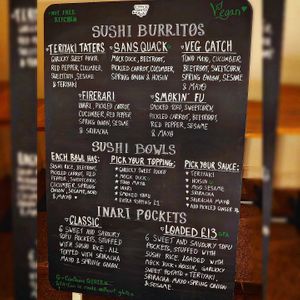 NUT FREE
KITCHEN
Vegan
SUSHI BURRITOS
TERIYAKI TATERS
GARLICKY SWEET POTATO,
RED PEPPER, CUCUMBER,
SWEETCORN, SESAME
& TERIYAKI
SANS QUACK
MOCK DUCK, BEETROOT,
PICKLED CARROT, CUCUMBER,
SPRING ONION & HOISIN
VEG CATCH
TUNO MAYO, CUCUMBER,
BEETROOT, SWEETCORN,
SPRING ONION, SESAME
& MAYO
FIRERARI
INARI, PICKLED CARROT,
CUCUMBER, RED PEPPER,
SPRING ONION, SESAME
& SRIRACHA
SMOKIN' FU
SMOKED TOFU, SWEETCORN,
PICKLED CARROT, BEETROOT,
RED PEPPER, SESAME
& MAYO
SUSHI BOWLS
EACH BOWL HAS:
SUSHI RICE, BEETROOT,
PICKLED CARROT, RED
PEPPER, SWEETCORN,
CUCUMBER, SPRING
ONION, SESAME
& MAYO
PICK YOUR TOPPING:
GARLICKY SWEET POTATO
MOCK DUCK
TUNO MAYO
INARI
SMOKED TOFU
PICK YOUR SAUCE:
TERIYAKI
HOISIN
MISO SESAME
SRIRACHA
SOYA SAUCE
AND PICKLED GINGER
INARI POCKETS
CLASSIC
6 SWEET AND SAVOURY
TOFU POCKETS, STUFFED
WITH SUSHI RICE. ALL
TOPPED WITH SRIRACHA
MAYO & SPRING ONION
LOADED £13
6 SWEET AND SAVOURY TOFU
POCKETS, STUFFED WITH
SUSHI RICE. LOADED WITH
MOCK DUCK + HOISIN, GARLICKY
SWEET POTATO + TERIYAKI,
SRIRACHA MAYO & SPRING
ONION